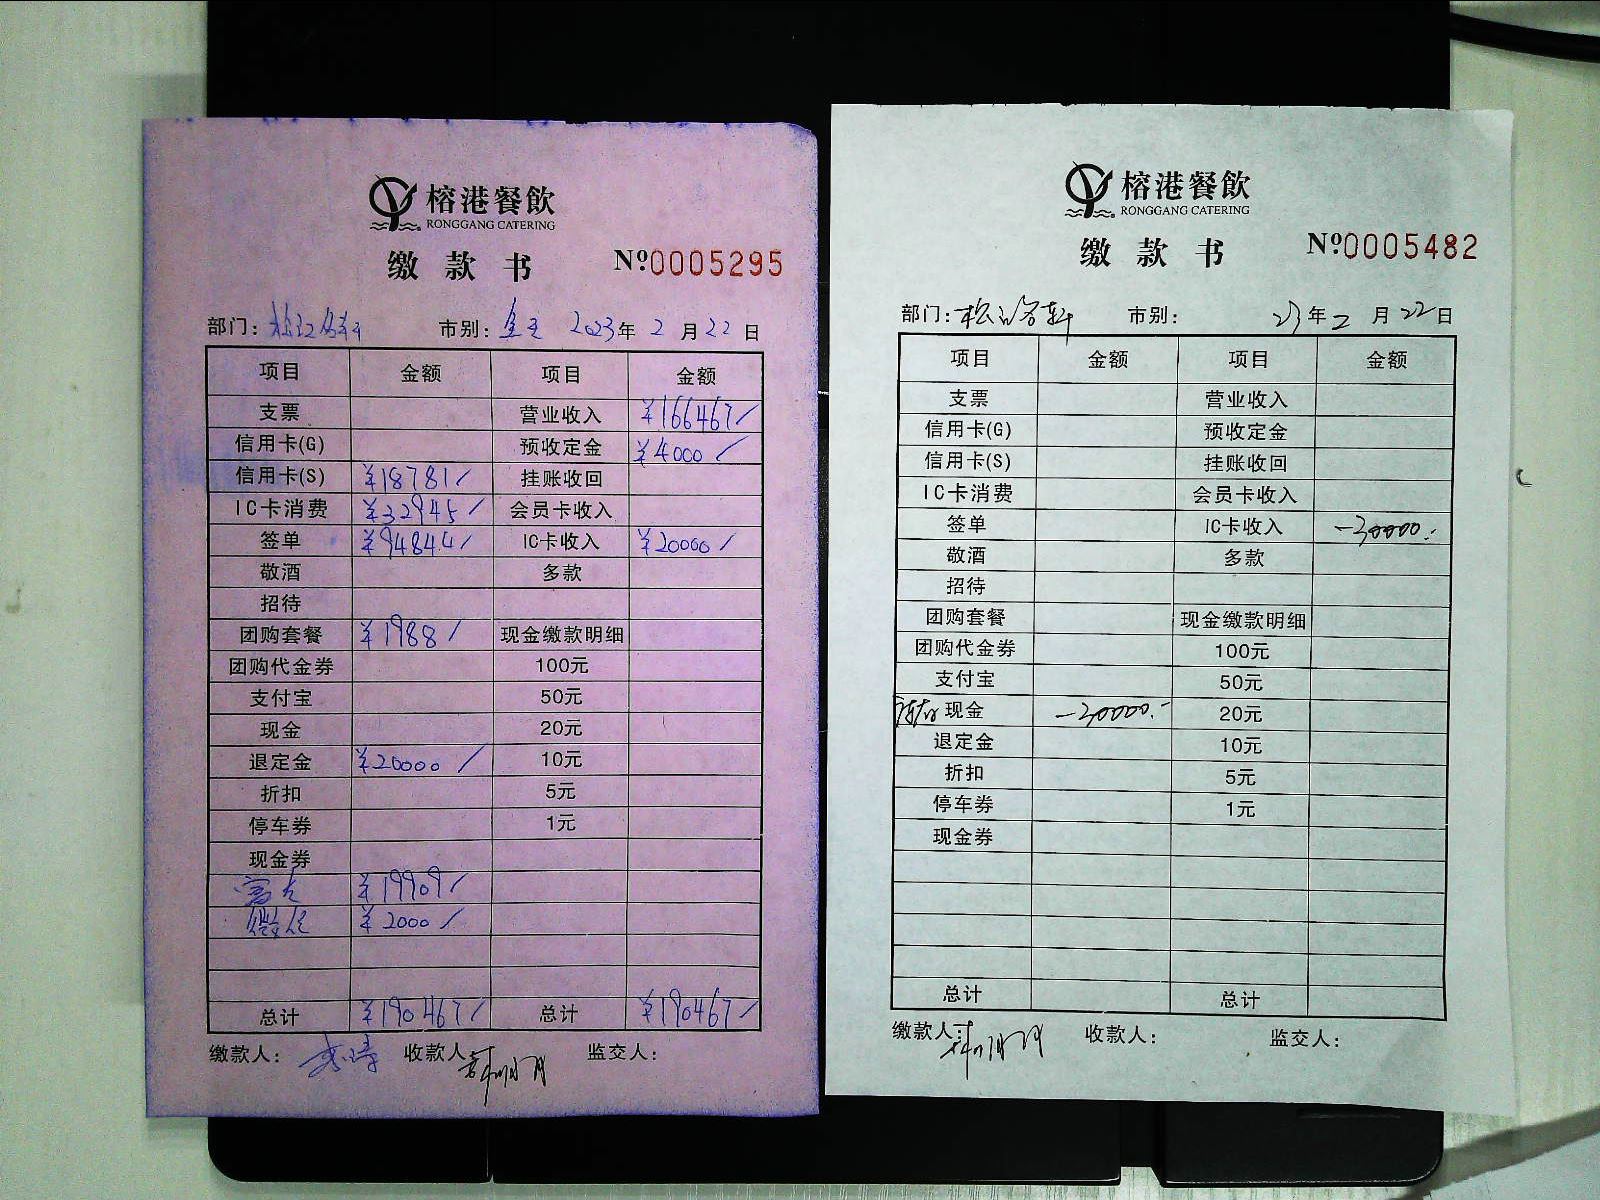 榕港餐飲
RONGGANG CATERING
缴款书 №0005295
部门: 市别: 2023年2月22日
项目 金额 项目 金额
支票 营业收入 ¥166467/
信用卡(G) 预收定金 ¥4000/
信用卡(S) ¥18781/ 挂账收回
IC卡消费 ¥32945/ 会员卡收入
签单 ¥94844/ IC卡收入 ¥20000/
敬酒 多款
招待
团购套餐 ¥1988/ 现金缴款明细
团购代金券 100元
支付宝 50元
现金 20元
退定金 ¥20000/ 10元
折扣 5元
停车券 1元
现金券
¥19909/
微信 ¥2000/
总计 ¥190467/ 总计 ¥190467/
缴款人: 收款人 韩明月 监交人:
榕港餐飲
RONGGANG CATERING
缴款书 №0005482
部门: 市别: 23年2月22日
项目 金额 项目 金额
支票 营业收入
信用卡(G) 预收定金
信用卡(S) 挂账收回
IC卡消费 会员卡收入
签单 IC卡收入 -30000.-
敬酒 多款
招待
团购套餐 现金缴款明细
团购代金券 100元
支付宝 50元
现金 -30000.- 20元
退定金 10元
折扣 5元
停车券 1元
现金券
总计 总计
缴款人: 韩明月 收款人: 监交人: